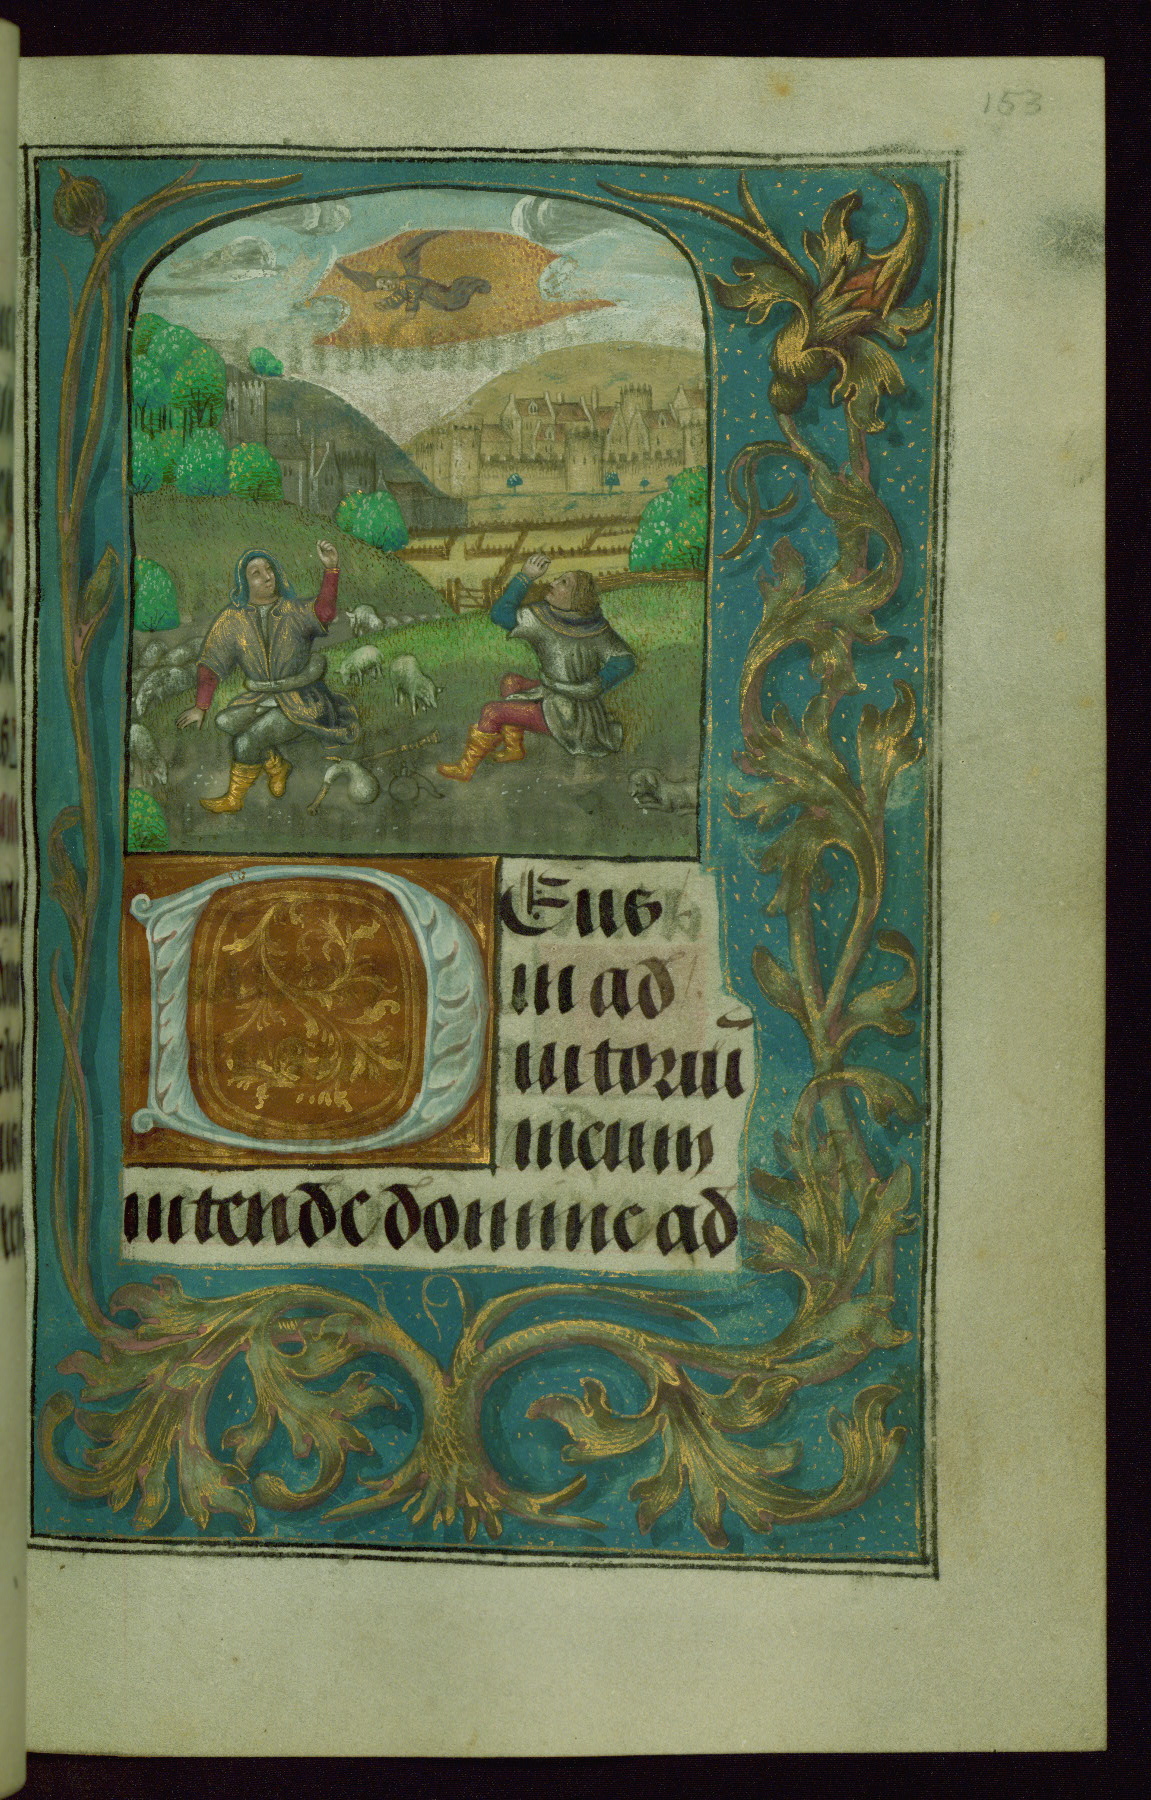 153
Deus
in ad
iutoriū
meum
intende domine ad